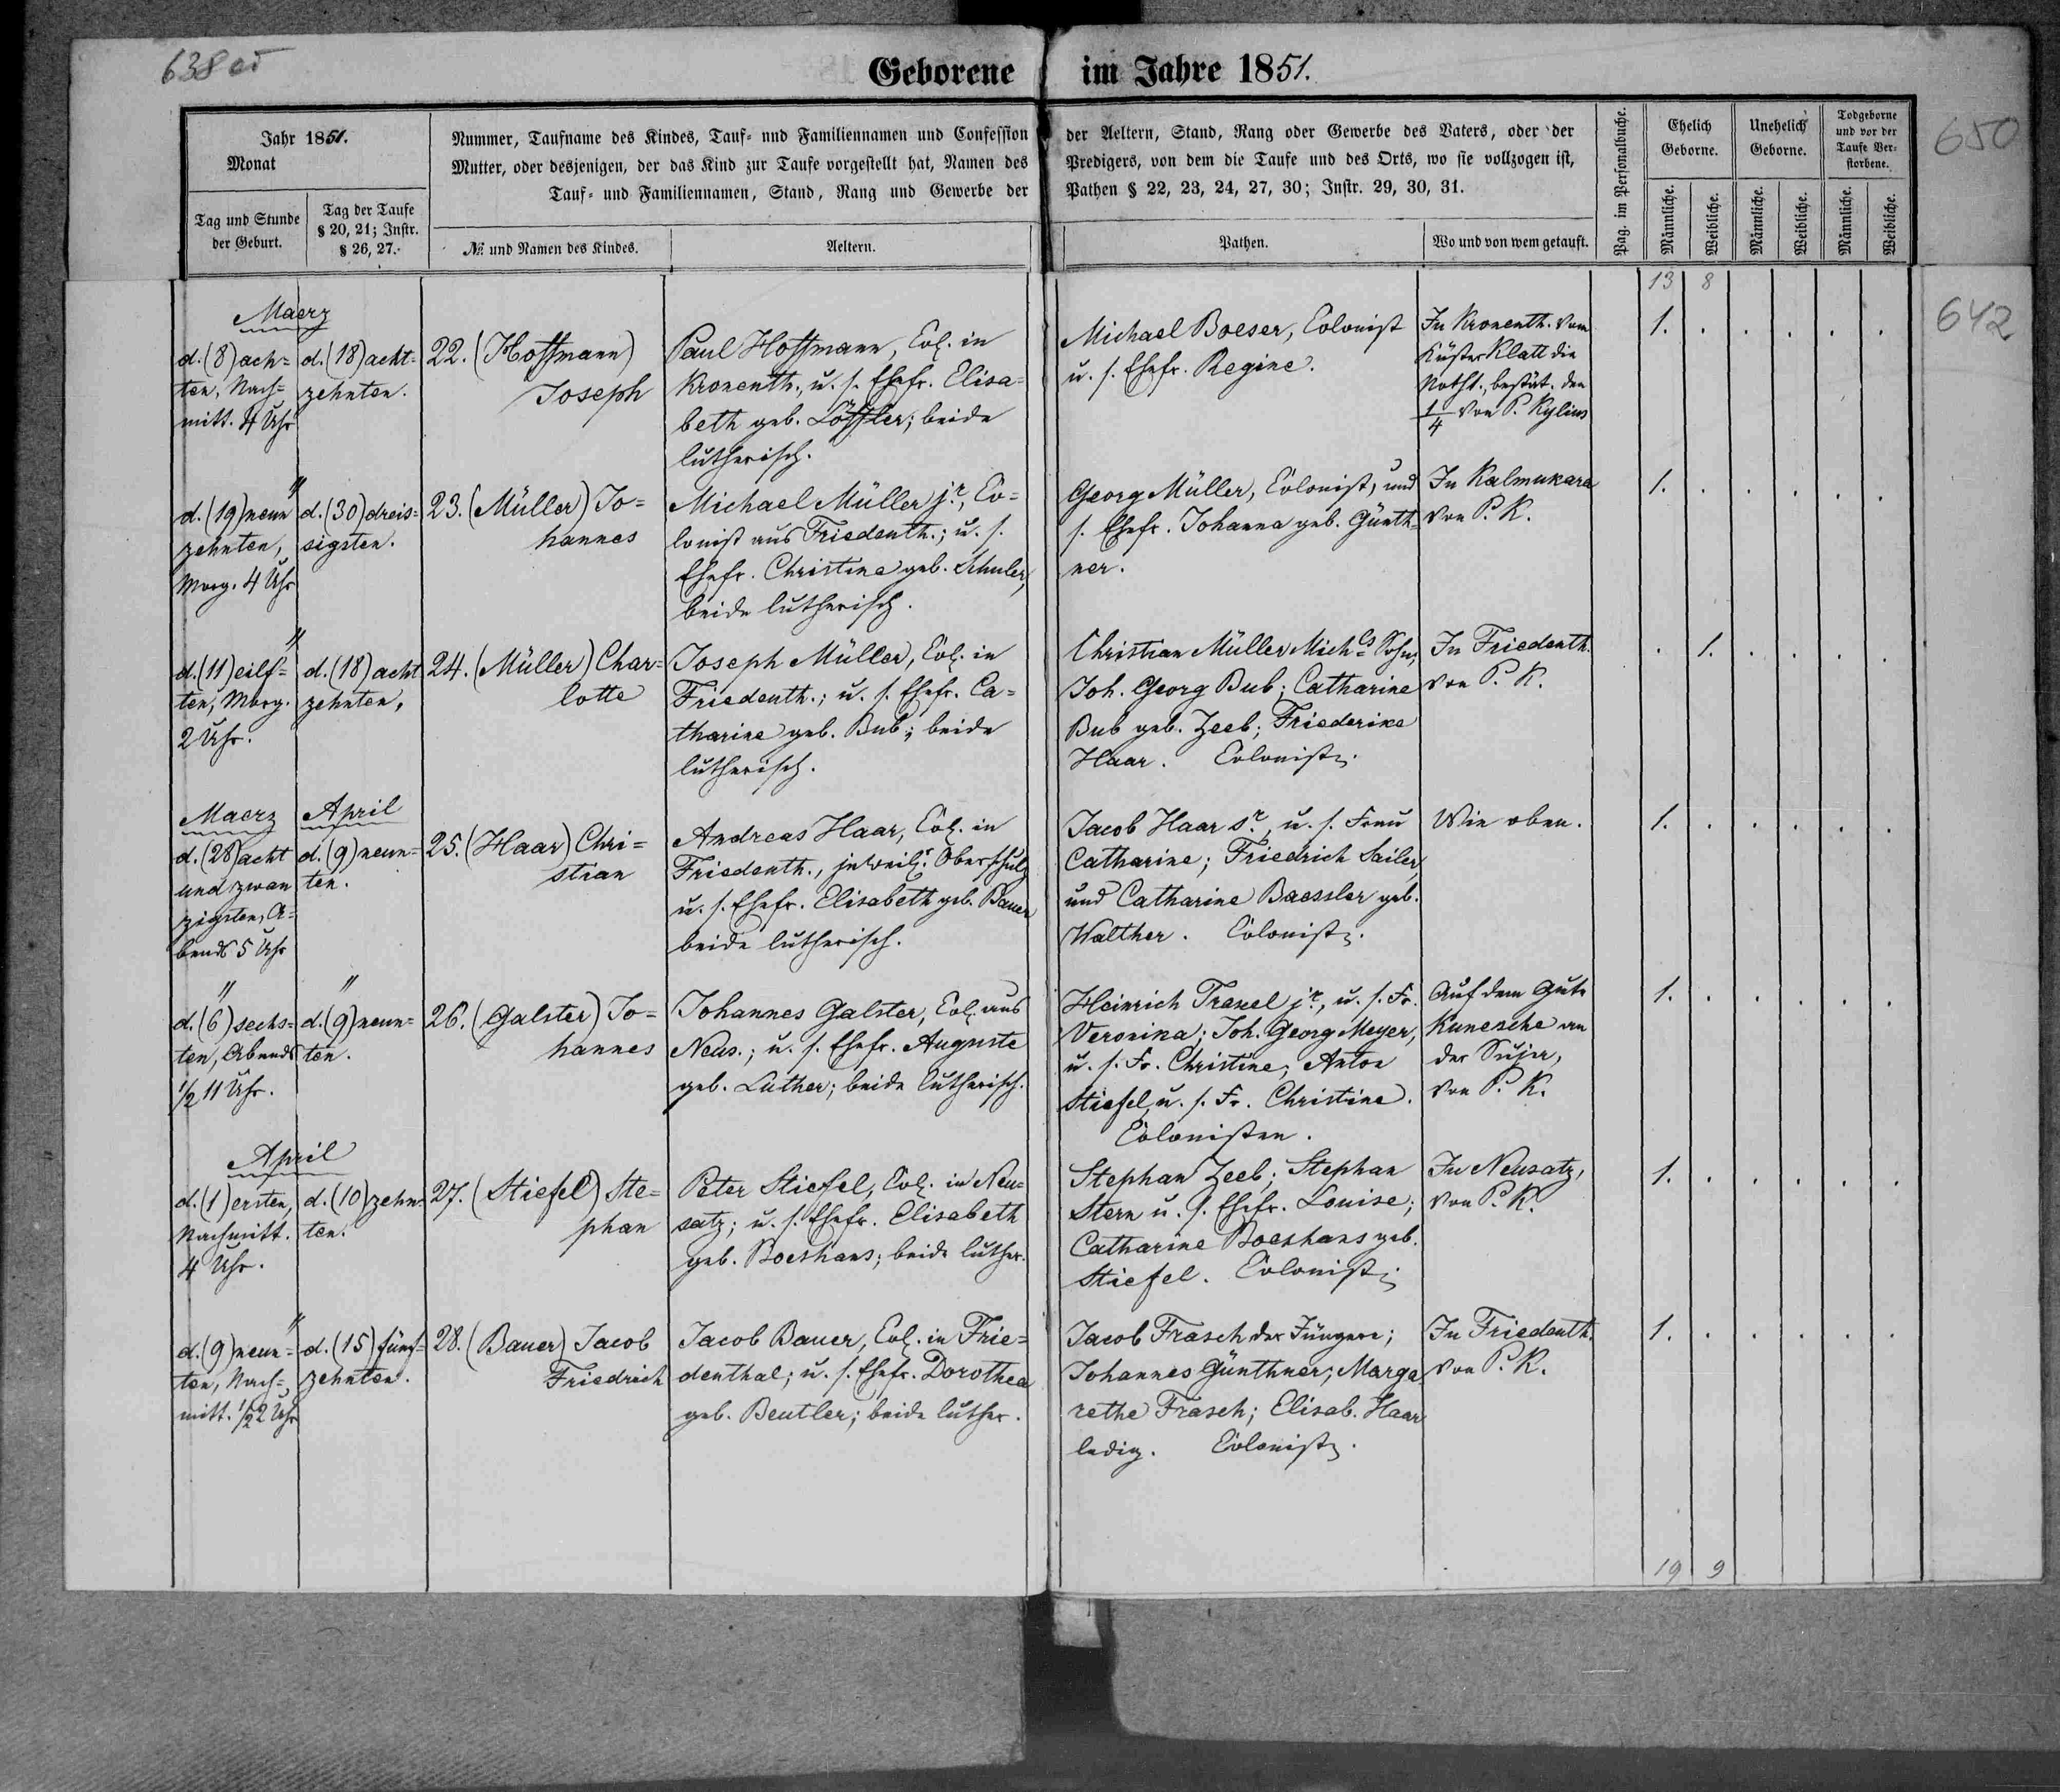 638
Geborene im Jahre 1851.
650
642
Jahr 1851.
Monat
Tag und Stunde
der Geburt.
Tag der Taufe
§ 20, 21; Instr.
§ 26, 27.
Nummer, Taufname des Kindes, Tauf- und Familiennamen und Confession
Mutter, oder desjenigen, der das Kind zur Taufe vorgestellt hat, Namen des
Tauf- und Familiennamen, Stand, Rang und Gewerbe der
№ und Namen des Kindes.
Aeltern.
der Aeltern, Stand, Rang oder Gewerbe des Vaters, oder der
Predigers, von dem die Taufe und des Orts, wo sie vollzogen ist,
Pathen § 22, 23, 24, 27, 30; Instr. 29, 30, 31.
Pathen.
Wo und von wem getauft.
Pag. im Personalbuche.
Ehelich
Geborne.
Unehelich
Geborne.
Todgeborne
und vor der
Taufe Ver-
storbene.
Männliche.
Weibliche.
Männliche.
Weibliche.
Männliche.
Weibliche.
13 8
Maerz
d. (8) ach=
ten, Nach=
mitt. 4 Uhr
d. (18) acht=
zehnten.
22. (Hoffmann)
Joseph
Paul Hoffmann, Col. in
Kronenth., u. s. Ehefr. Elisa=
beth geb. Löffler; beide
lutherisch.
Michael Boeser, Colonist
u. s. Ehefr. Regine.
In Kronenth. vom
Küster Klatt die
Notht., bestät. den
1/4 von P. Kylius
1. . . . . .
"
d. (19) neun
zehnten,
Morg. 4 Uhr
d. (30) dreis=
sigsten.
23. (Müller) Jo=
hannes
Michael Müller jr., Co=
lonist aus Friedenth.; u. s.
Ehefr. Christine geb. Schuler,
beide lutherisch.
Georg Müller, Colonist, und
s. Ehefr. Johanna geb. Günth=
ner.
In Kalmukara
von P. K.
1. . . . . .
"
d. (11) eilf=
ten, Morg.
2 Uhr.
d. (18) acht
zehnten,
24. (Müller) Char=
lotte
Joseph Müller, Col. in
Friedenth.; u. s. Ehefr. Ca=
tharine geb. Bub; beide
lutherisch.
Christian Müller Michls Sohn;
Joh. Georg Bub; Catharine
Bub geb. Zeeb; Friederike
Haar. Colonist.
In Friedenth.
von P. K.
. 1. . . . .
Maerz
d. (28) acht
und zwan
zigsten, A=
bends 5 Uhr
April
d. (9) neun=
ten.
25. (Haar) Chri=
stian
Andreas Haar, Col. in
Friedenth., jeweil. Oberschulz
u. s. Ehefr. Elisabeth geb. Bauer
beide lutherisch.
Jacob Haar sr., u. s. Frau
Catharine; Friedrich Sailer,
und Catharine Baessler geb.
Walther. Colonist.
Wie oben.
1. . . . . .
"
d. (6) sechs=
ten, Abends
1/2 11 Uhr.
"
d. (9) neun=
ten.
26. (Galster) Jo=
hannes
Johannes Galster, Col. aus
Neus.; u. s. Ehefr. Auguste
geb. Luther; beide lutherisch.
Heinrich Traxel jr., u. s. Fr.
Veronika; Joh. Georg Meyer,
u. s. Fr. Christine; Anton
Stiefel, u. s. Fr. Christine.
Colonisten.
Auf dem Gute
Kunensche an
der Suja,
von P. K.
1. . . . . .
April
d. (1) ersten,
Nachmitt.
4 Uhr.
d. (10) zehn=
ten.
27. (Stiefel) Ste=
phan
Peter Stiefel, Col. in Neu=
satz; u. s. Ehefr. Elisabeth
geb. Boeshans; beide luther.
Stephan Zeeb; Stephan
Stern u. s. Ehefr. Louise;
Catharine Boeshans geb.
Stiefel. Colonist.
In Neusatz,
von P. K.
1. . . . . .
"
d. (9) neun=
ten, Nach=
mitt. 1/2 2 Uhr
d. (15) fünf=
zehnten.
28. (Bauer) Jacob
Friedrich
Jacob Bauer, Col. in Frie=
denthal; u. s. Ehefr. Dorothea
geb. Beutler; beide luther.
Jacob Frasch der Jüngere;
Johannes Günthner; Marga
rethe Frasch; Elisab. Haar
ledig. Colonist.
In Friedenth.
von P. K.
1. . . . . .
19 9